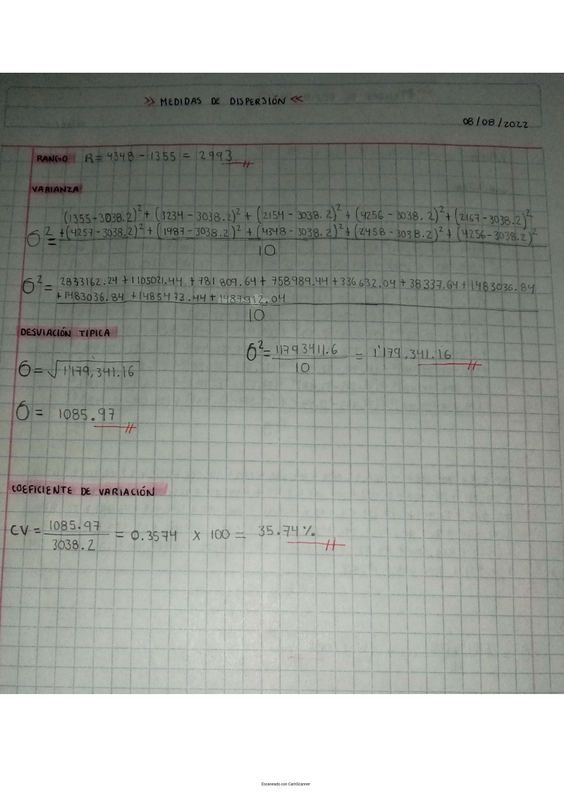 >> MEDIDAS DE DISPERSIÓN <<
08/08/2022
RANGO R = 4348 - 1355 = 2993
VARIANZA
(1355-3038.2)² + (3234 - 3038.2)² + (2154 - 3038.2)² + (4256 - 3038.2)² + (2167-3038.2)²
σ² = +(4257-3038.2)² + (1987 - 3038.2)² + (4348 - 3038.2)² + (2458 - 3038.2)² + (4256-3038.2)²
10
σ² = 2833162.24 + 1105021.44 + 781 809.64 + 758989.44 + 336632.04 + 38337.64 + 1483036.84
+1483036.84 + 1485473.44 + 1487912.04
10
DESVIACIÓN TIPICA
σ² = 11793411.6 = 1'179,341.16
10
σ = √1'179,341.16
σ = 1085.97
COEFICIENTE DE VARIACIÓN
CV = 1085.97 = 0.3574 x 100 = 35.74%
3038.2
Escaneado con CamScanner